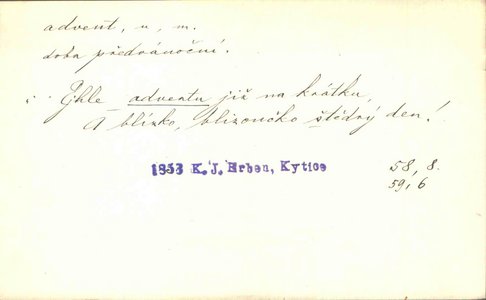 advent, u, m.
doba předvánoční.
Ejhle adventu již na krátku,
A blízko, blizoučko štědrý den!
1853 K. J. Erben, Kytice
58, 8.
59, 6